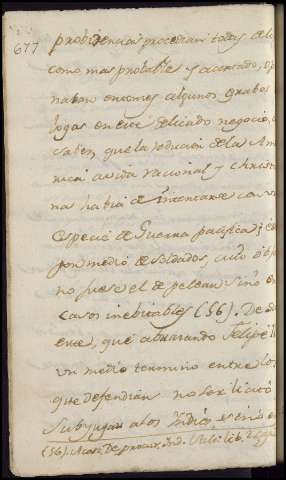 677
providencias procedian todas de lo
como mas probable, y acertado, o
naban entonces algunos grabes
logos en este delicado negocio,
saber, que la reducion de la Ame
rica a vida racional y christia
na habia de intentarse con u
especie de Guerra pacifica; e
por medio de soldados, cuio obje
no fuese el de pelear sino en
casos inebitables (56). De
que abrazando Felipe II
un medio termino entre los
que defendian no ser licito
Subyugar a los Indios, sino
(56). Acost. De procur. Ind. Salu. lib. 2.